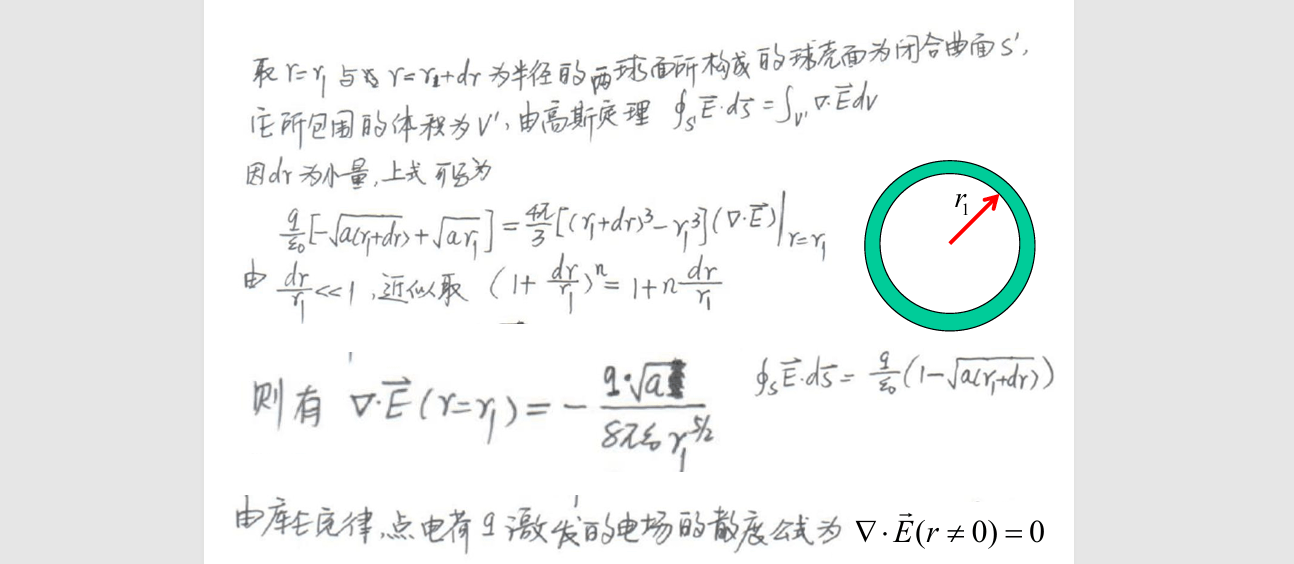 取 r=r₁ 与以 r=r₁+dr 为半径的两球面所构成的球壳面为闭合曲面 S',
它所包围的体积为 V', 由高斯定理 ∮_S' E⃗·dS⃗ = ∫_V' ∇·E⃗ dV
因dr为小量,上式可写为
r₁
q/ε₀ [-√a(r₁+dr) + √ar₁] = 4π/3 [(r₁+dr)³ - r₁³] (∇·E⃗)|r=r₁
由 dr/r₁ << 1 ,近似取 (1+ dr/r₁)ⁿ = 1+n dr/r₁
则有 ∇·E⃗ (r=r₁) = - q·√a / 8πε₀ r₁^5/2
∮_S E⃗·dS⃗ = q/ε₀ (1-√a(r₁+dr))
由库仑定律,点电荷 q 激发的电场的散度公式为 ∇·E⃗(r≠0)=0